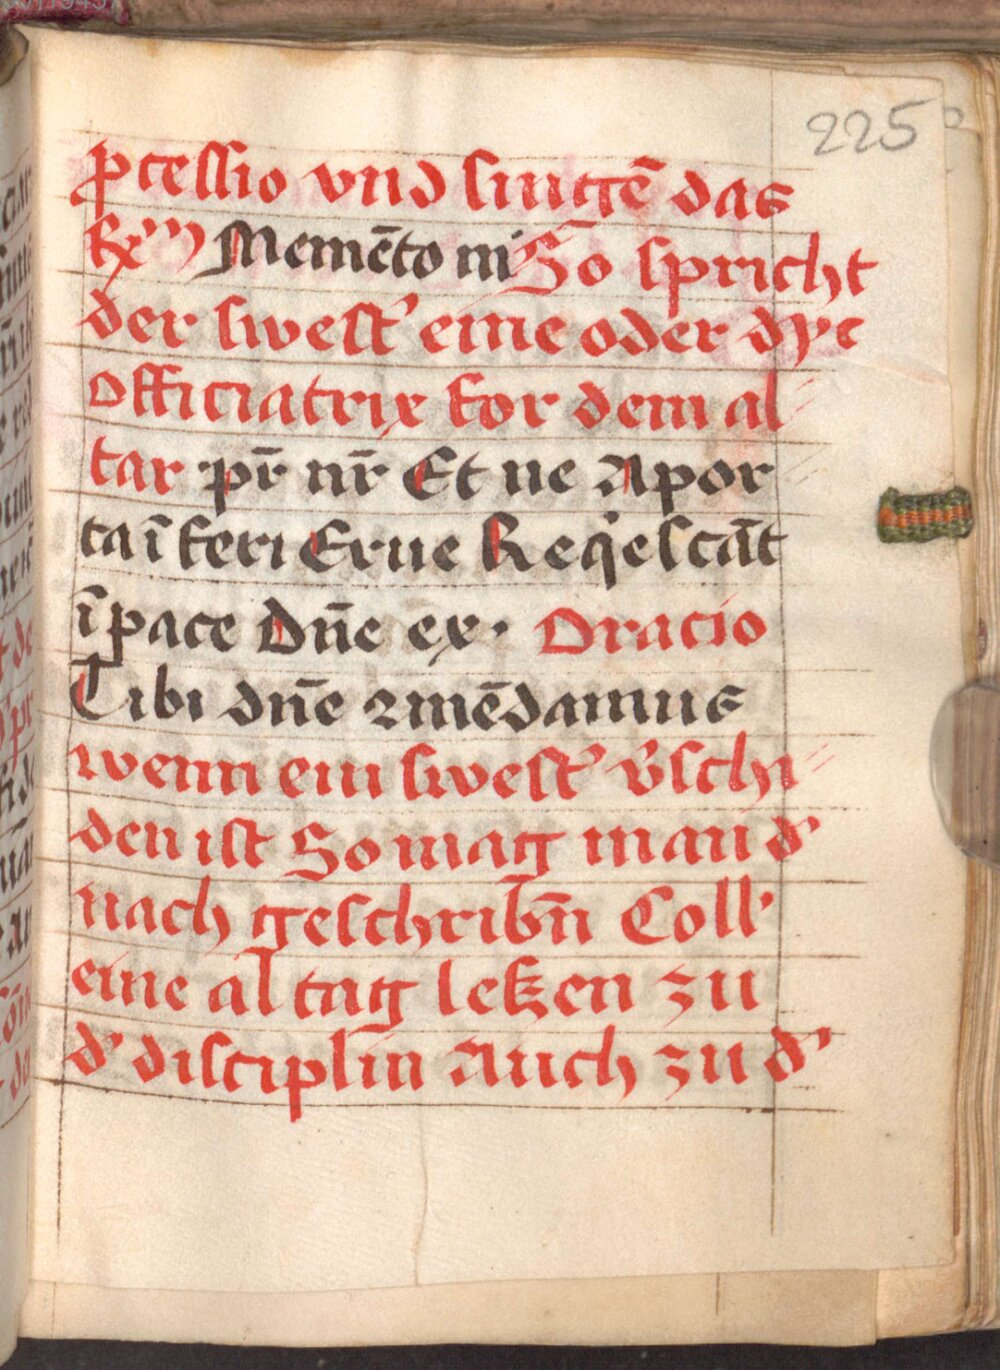 225
ꝓcessio vnd singē das
R̃m Memēto mi So spricht
der swest' eine oder dye
officiatrix for dem al
tar pr̄ nr̄ Et ne A por
ta īferi Erue Reqͥescāt
ī pace Dn̄e ex. Oracio
Tibi dn̄e ꝯmēdamus
wenn ein swest' v'schi
den ist So mag man d'
nach geschribn̄ Coll'
eine al tag leßen zu
d' disciplin Auch zu d'